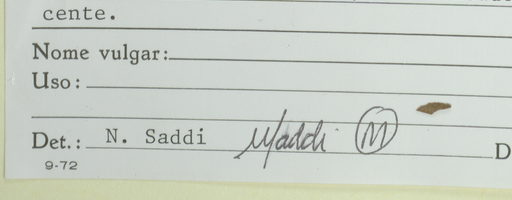 cente.
Nome vulgar:
Uso:
Det.: N. Saddi M D
9-72